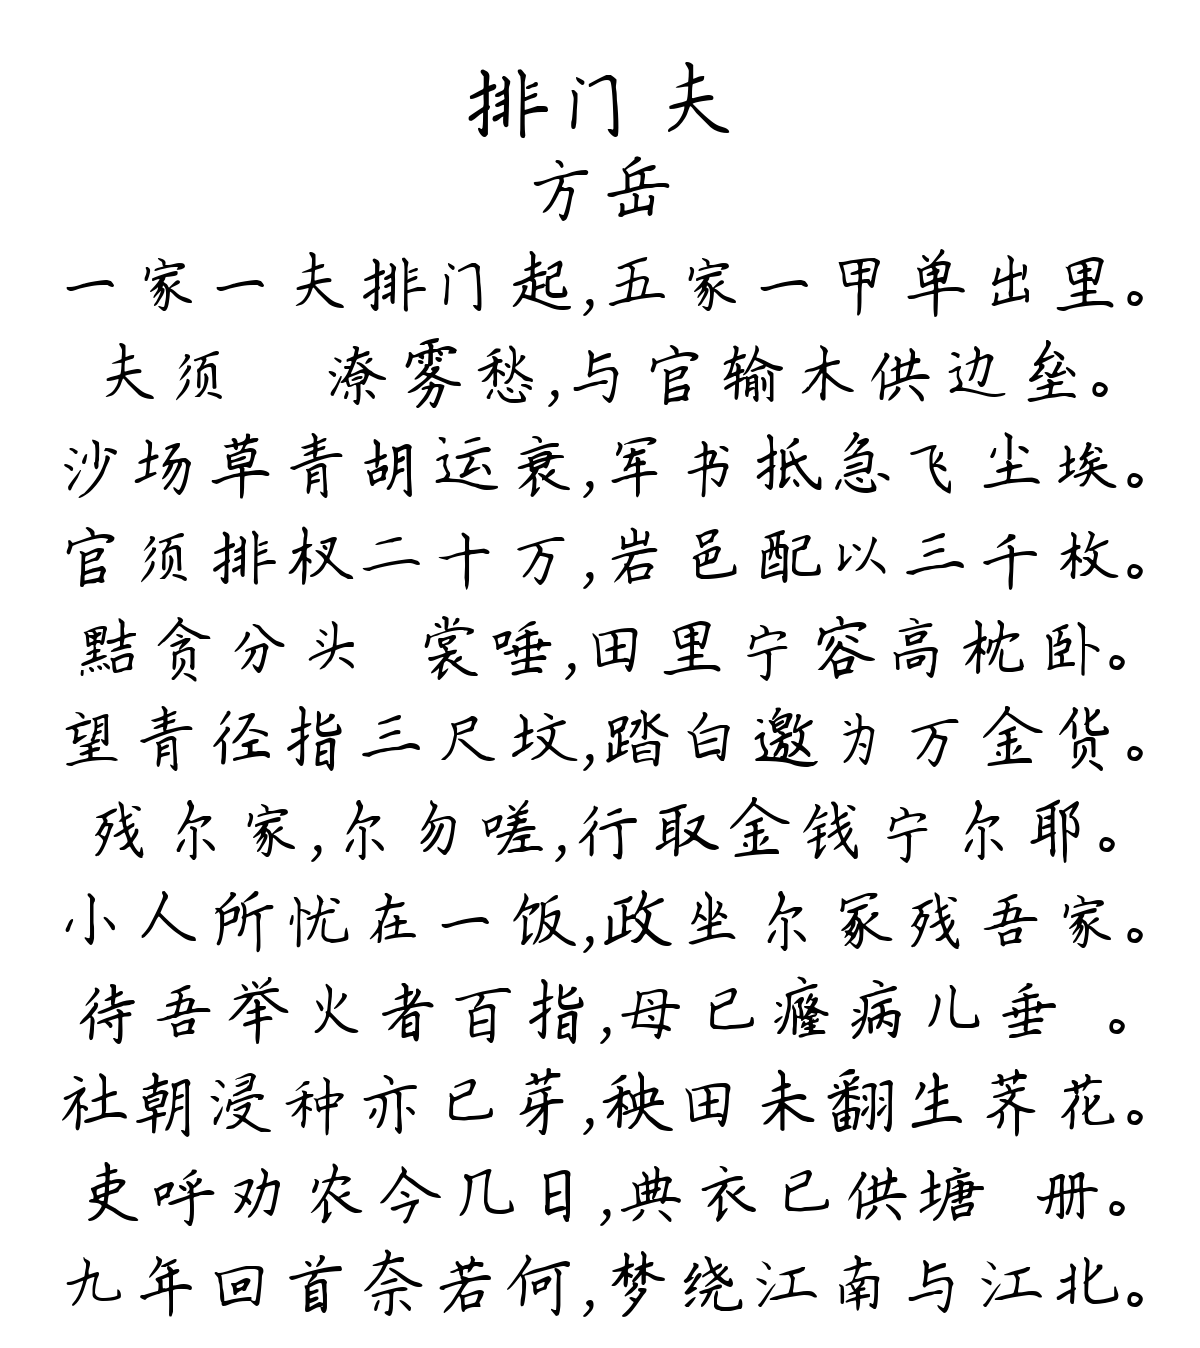 排门夫
方岳
一家一夫排门起,五家一甲单出里。
夫须 潦雾愁,与官输木供边垒。
沙场草青胡运衰,军书抵急飞尘埃。
官须排杈二十万,岩邑配以三千枚。
黠贪分头 裳唾,田里宁容高枕卧。
望青径指三尺坟,踏白邀为万金货。
残尔家,尔勿嗟,行取金钱宁尔耶。
小人所忧在一饭,政坐尔冢残吾家。
待吾举火者百指,母已癃病儿垂 。
社朝浸种亦已芽,秧田未翻生荠花。
吏呼劝农今几日,典衣已供塘 册。
九年回首奈若何,梦绕江南与江北。